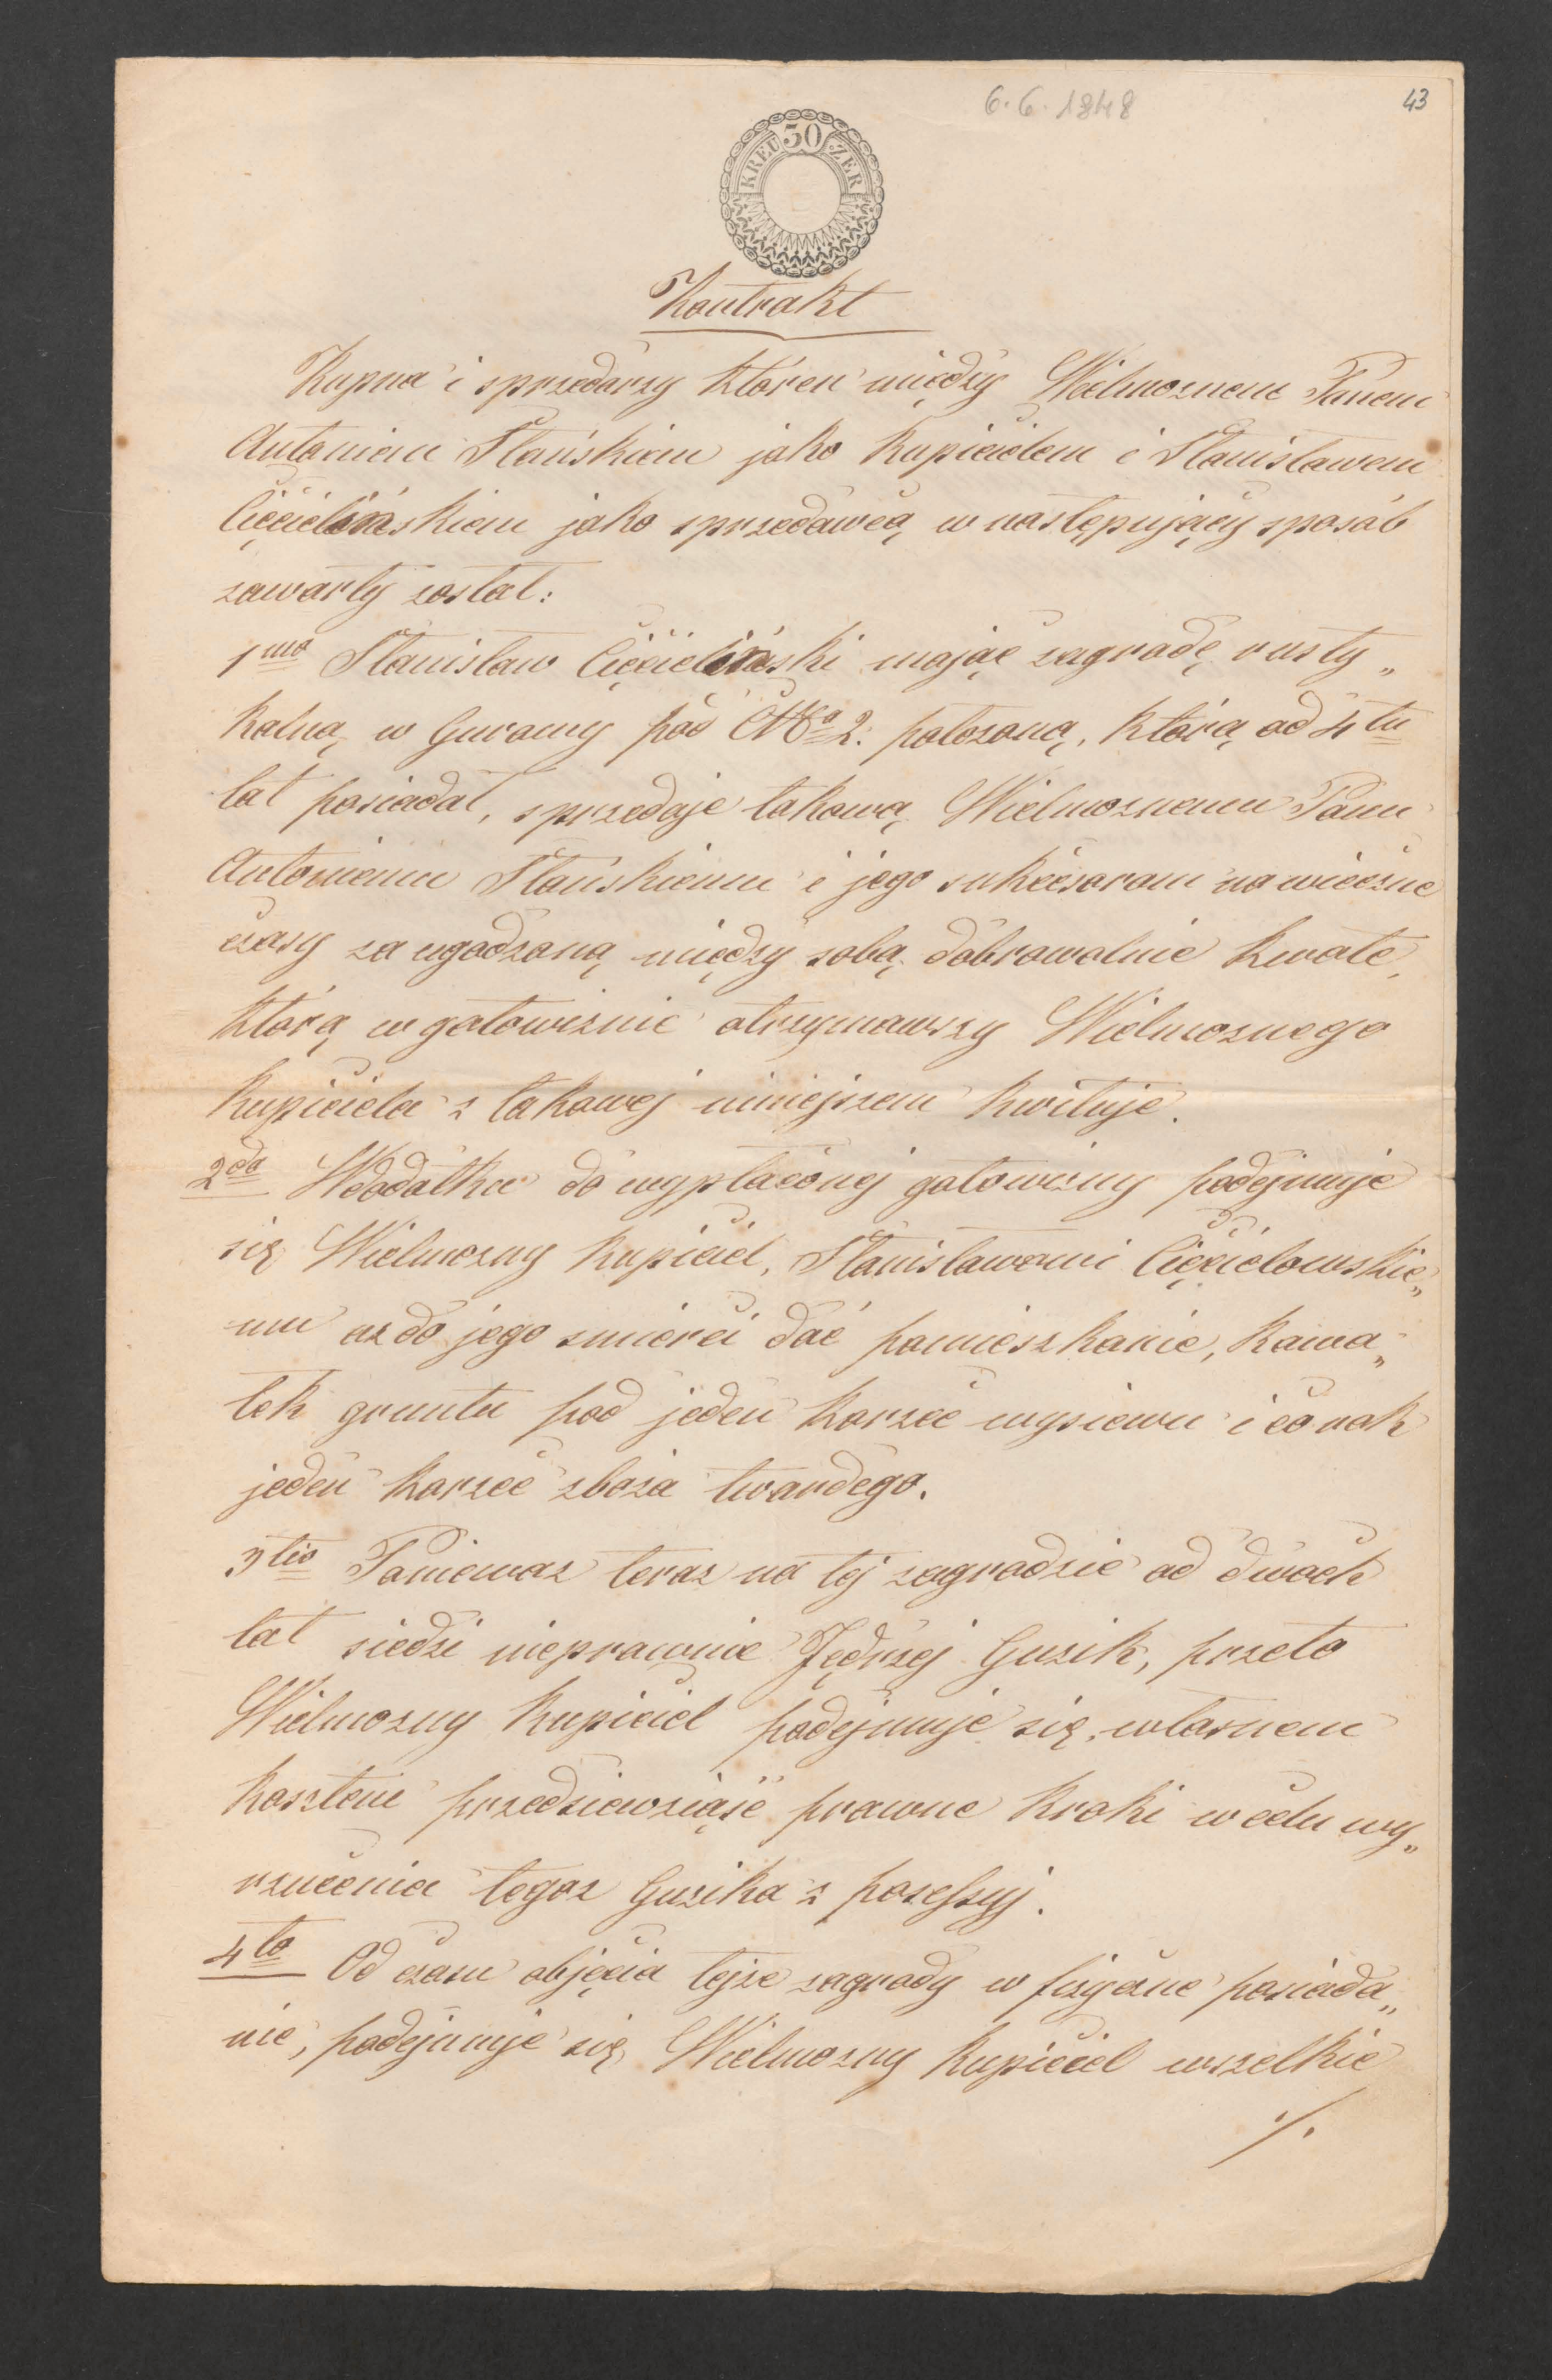 6. 6. 1848
43
30
KREUZER
Kontrakt
Kupna i sprzedarzy któren między Wielmoznem Panem
Antoniem Stańskiem jako Kupicielem i Stanisławem
Cięcielińskiem jako sprzedawcą w następujący sposób
zawarty został:
1mo Stanisław Cięcieliński mając zagrodę rusty„
kalną w Gurowy pod No 2. położoną, którą od 4tu
lat posiadał, sprzedaje takową Wielmoznemu Panu
Antoniemu Stańskiemu i jego sukcesorom na wieczne
czasy za ugodzoną między sobą dobrowolnie kwotę,
którą w gotowiznie otrzymawszy Wielmoznego
Kupiciela z takowej niniejszem kwituje.
2do W dodatku do wypłaconej gotowizny podejmuje
się Wielmozny Kupiciel, Stanisławowi Cięcielowskie„
mu az do jego smierci dać pomieszkanie, kawa„
łek gruntu pod jeden korzec wysiewu i co rok
jeden korzec zboza twardego.
3tio Poniewaz teraz na tej zagrodzie od dwoch
lat siedzi nieprawnie Jędrzej Guzik, przeto
Wielmozny Kupiciel podejmuje się własnem
kosztem przedsiewziąść prawne kroki w celu wy„
rzucenia tegoz Guzika z posessyj.
4to Od czasu objęcia tejze zagrody w fizyczne posiada„
nie, podejmuje się Wielmozny Kupiciel wszelkie
./.